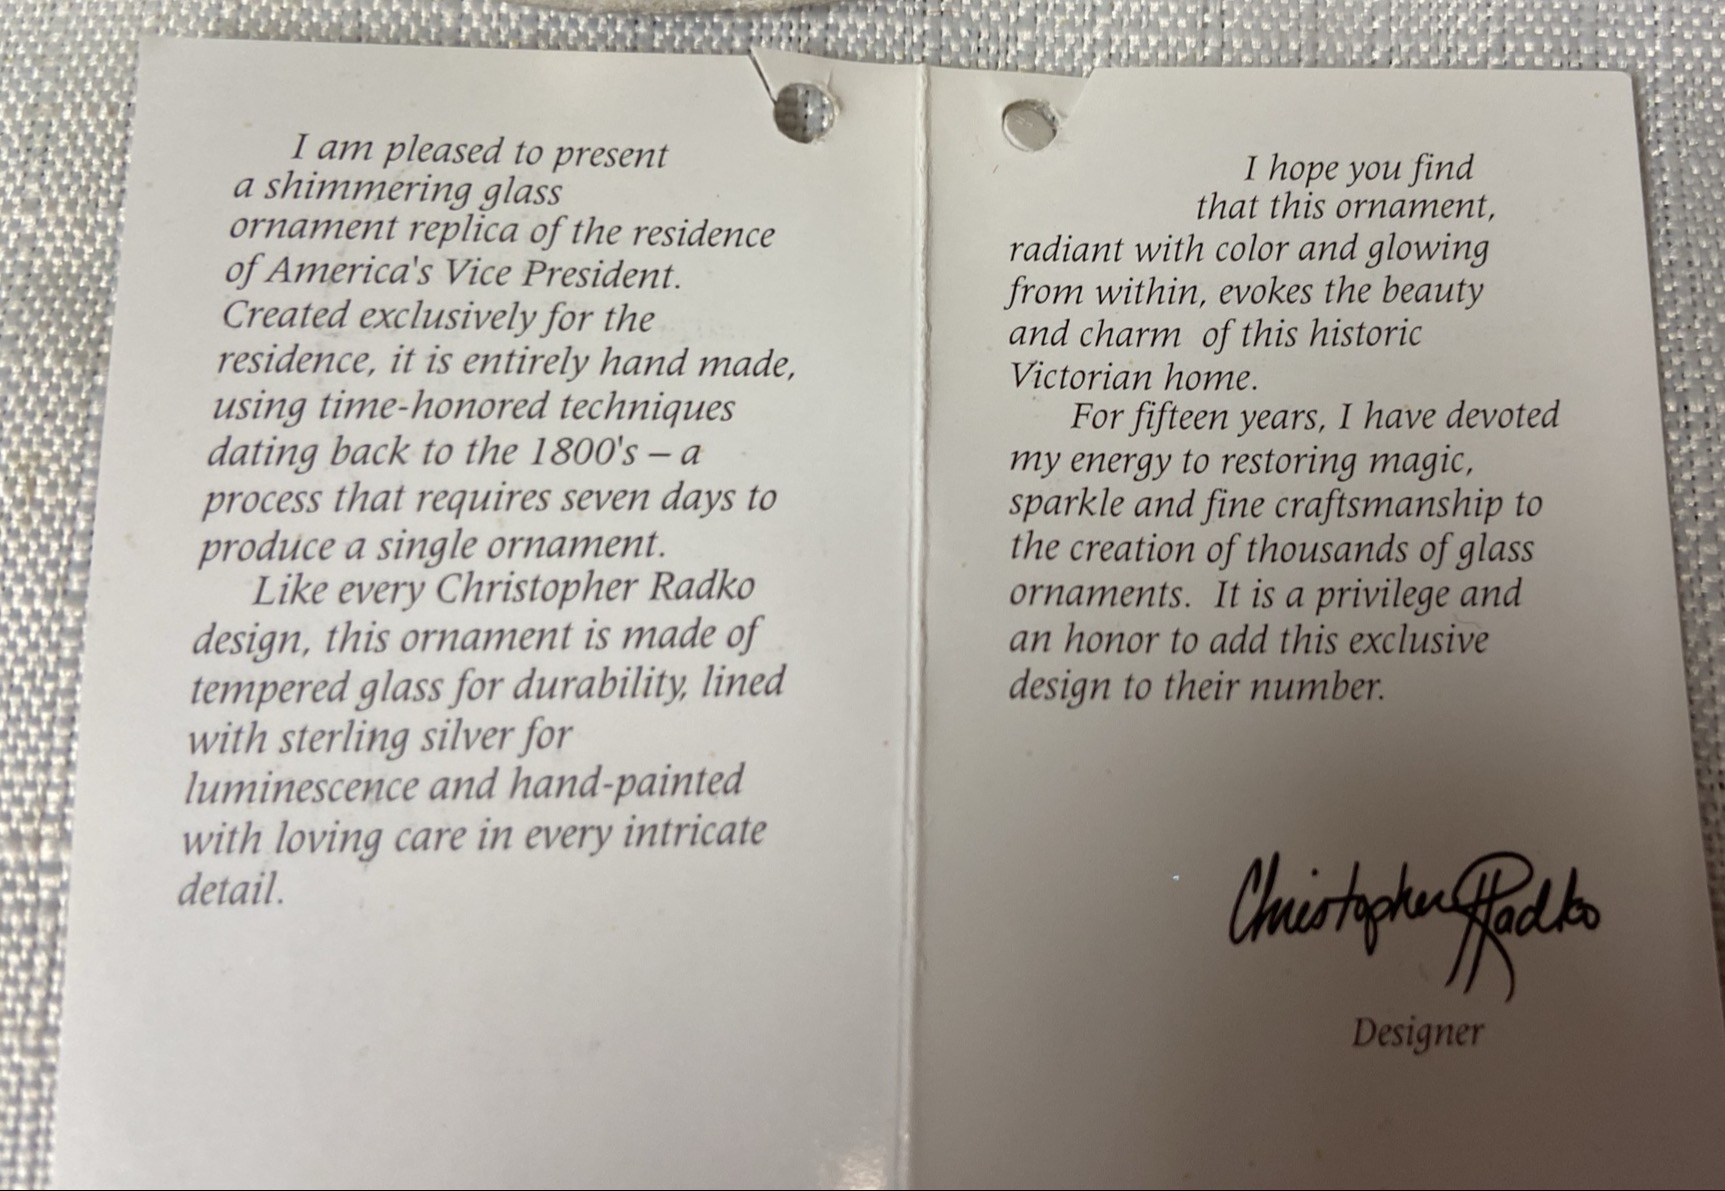 I am pleased to present
a shimmering glass
ornament replica of the residence
of America's Vice President.
Created exclusively for the
residence, it is entirely hand made,
using time-honored techniques
dating back to the 1800's – a
process that requires seven days to
produce a single ornament.
Like every Christopher Radko
design, this ornament is made of
tempered glass for durability, lined
with sterling silver for
luminescence and hand-painted
with loving care in every intricate
detail.
I hope you find
that this ornament,
radiant with color and glowing
from within, evokes the beauty
and charm of this historic
Victorian home.
For fifteen years, I have devoted
my energy to restoring magic,
sparkle and fine craftsmanship to
the creation of thousands of glass
ornaments. It is a privilege and
an honor to add this exclusive
design to their number.
Christopher Radko
Designer